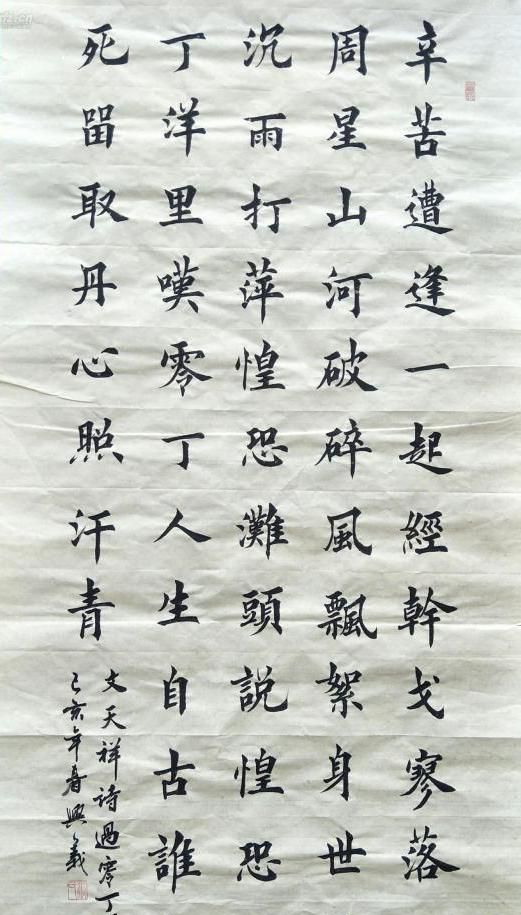 辛苦遭逢一起經幹戈寥落
周星山河破碎風飄絮身世
沉雨打萍惶恐灘頭說惶恐
丁洋里嘆零丁人生自古誰
死留取丹心照汗青
文天祥诗過零丁
己亥年春興義